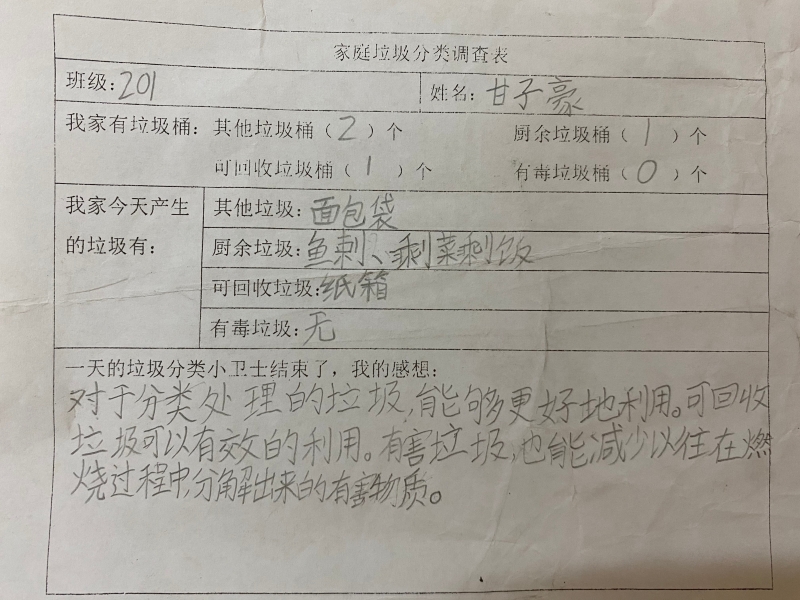 家庭垃圾分类调查表
班级:201 姓名:甘子豪
我家有垃圾桶: 其他垃圾桶(2)个 厨余垃圾桶(1)个
可回收垃圾桶(1)个 有毒垃圾桶(0)个
我家今天产生 其他垃圾:面包袋
的垃圾有: 厨余垃圾:鱼刺、剩菜剩饭
可回收垃圾:纸箱
有毒垃圾:无
一天的垃圾分类小卫士结束了,我的感想:
对于分类处理的垃圾,能够更好地利用。可回收
垃圾可以有效的利用。有害垃圾,也能减少以往在燃
烧过程中,分解出来的有害物质。